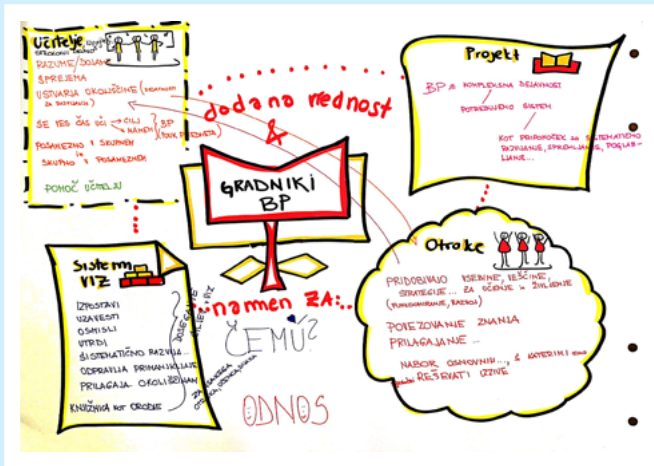 Učitelje
RAZUME/DOJAME
SPREJEMA
USTVARJA OKOLIŠČINE (
SE VES ČAS UČI → CILJ
NAMEN
BP
(POUK, PREDMETA)
POSAMEZNO V SKUPNEM
in
SKUPNO V POSAMEZNEM
POMOČ UČITELJU
dodana vrednost
&
GRADNIKI
BP
namen ZA:..
ČEMU?
ODNOS
Projekt
BP = KOMPLEKSNA DEJAVNOST
POTREBUJEMO SISTEM
KOT PRIPOMOČEK za SISTEMATIČNO
RAZVIJANJE, SPREMLJANJE, POGLAB-
LJANJE...
Sistem
VIZ
IZPOSTAVI
UZAVESTI
OSMISLI
UTRDI
SISTEMATIČNO RAZVIJA...
ODPRAVLJA PRIMANJKLJAJE
PRILAGAJA OKOLIŠČINAM
KNJIŽNICA KOT ORODJE
DOSEGANJE
CILJEV VIZ
ZA VSAKEGA
OTROKA, UČENCA, DIJAKA
Otroke
PRIDOBIVAJO VSEBINE, VEŠČINE,
STRATEGIJE... ZA UČENJE in ŽIVLJENJE
(FUNKCIONIRANJE, RAZVOJ)
POVEZOVANJE ZNANJA
PRILAGAJANJE ...
NABOR OSNOVNIH..., S KATERIMI
REŠEVATI IZZIVE